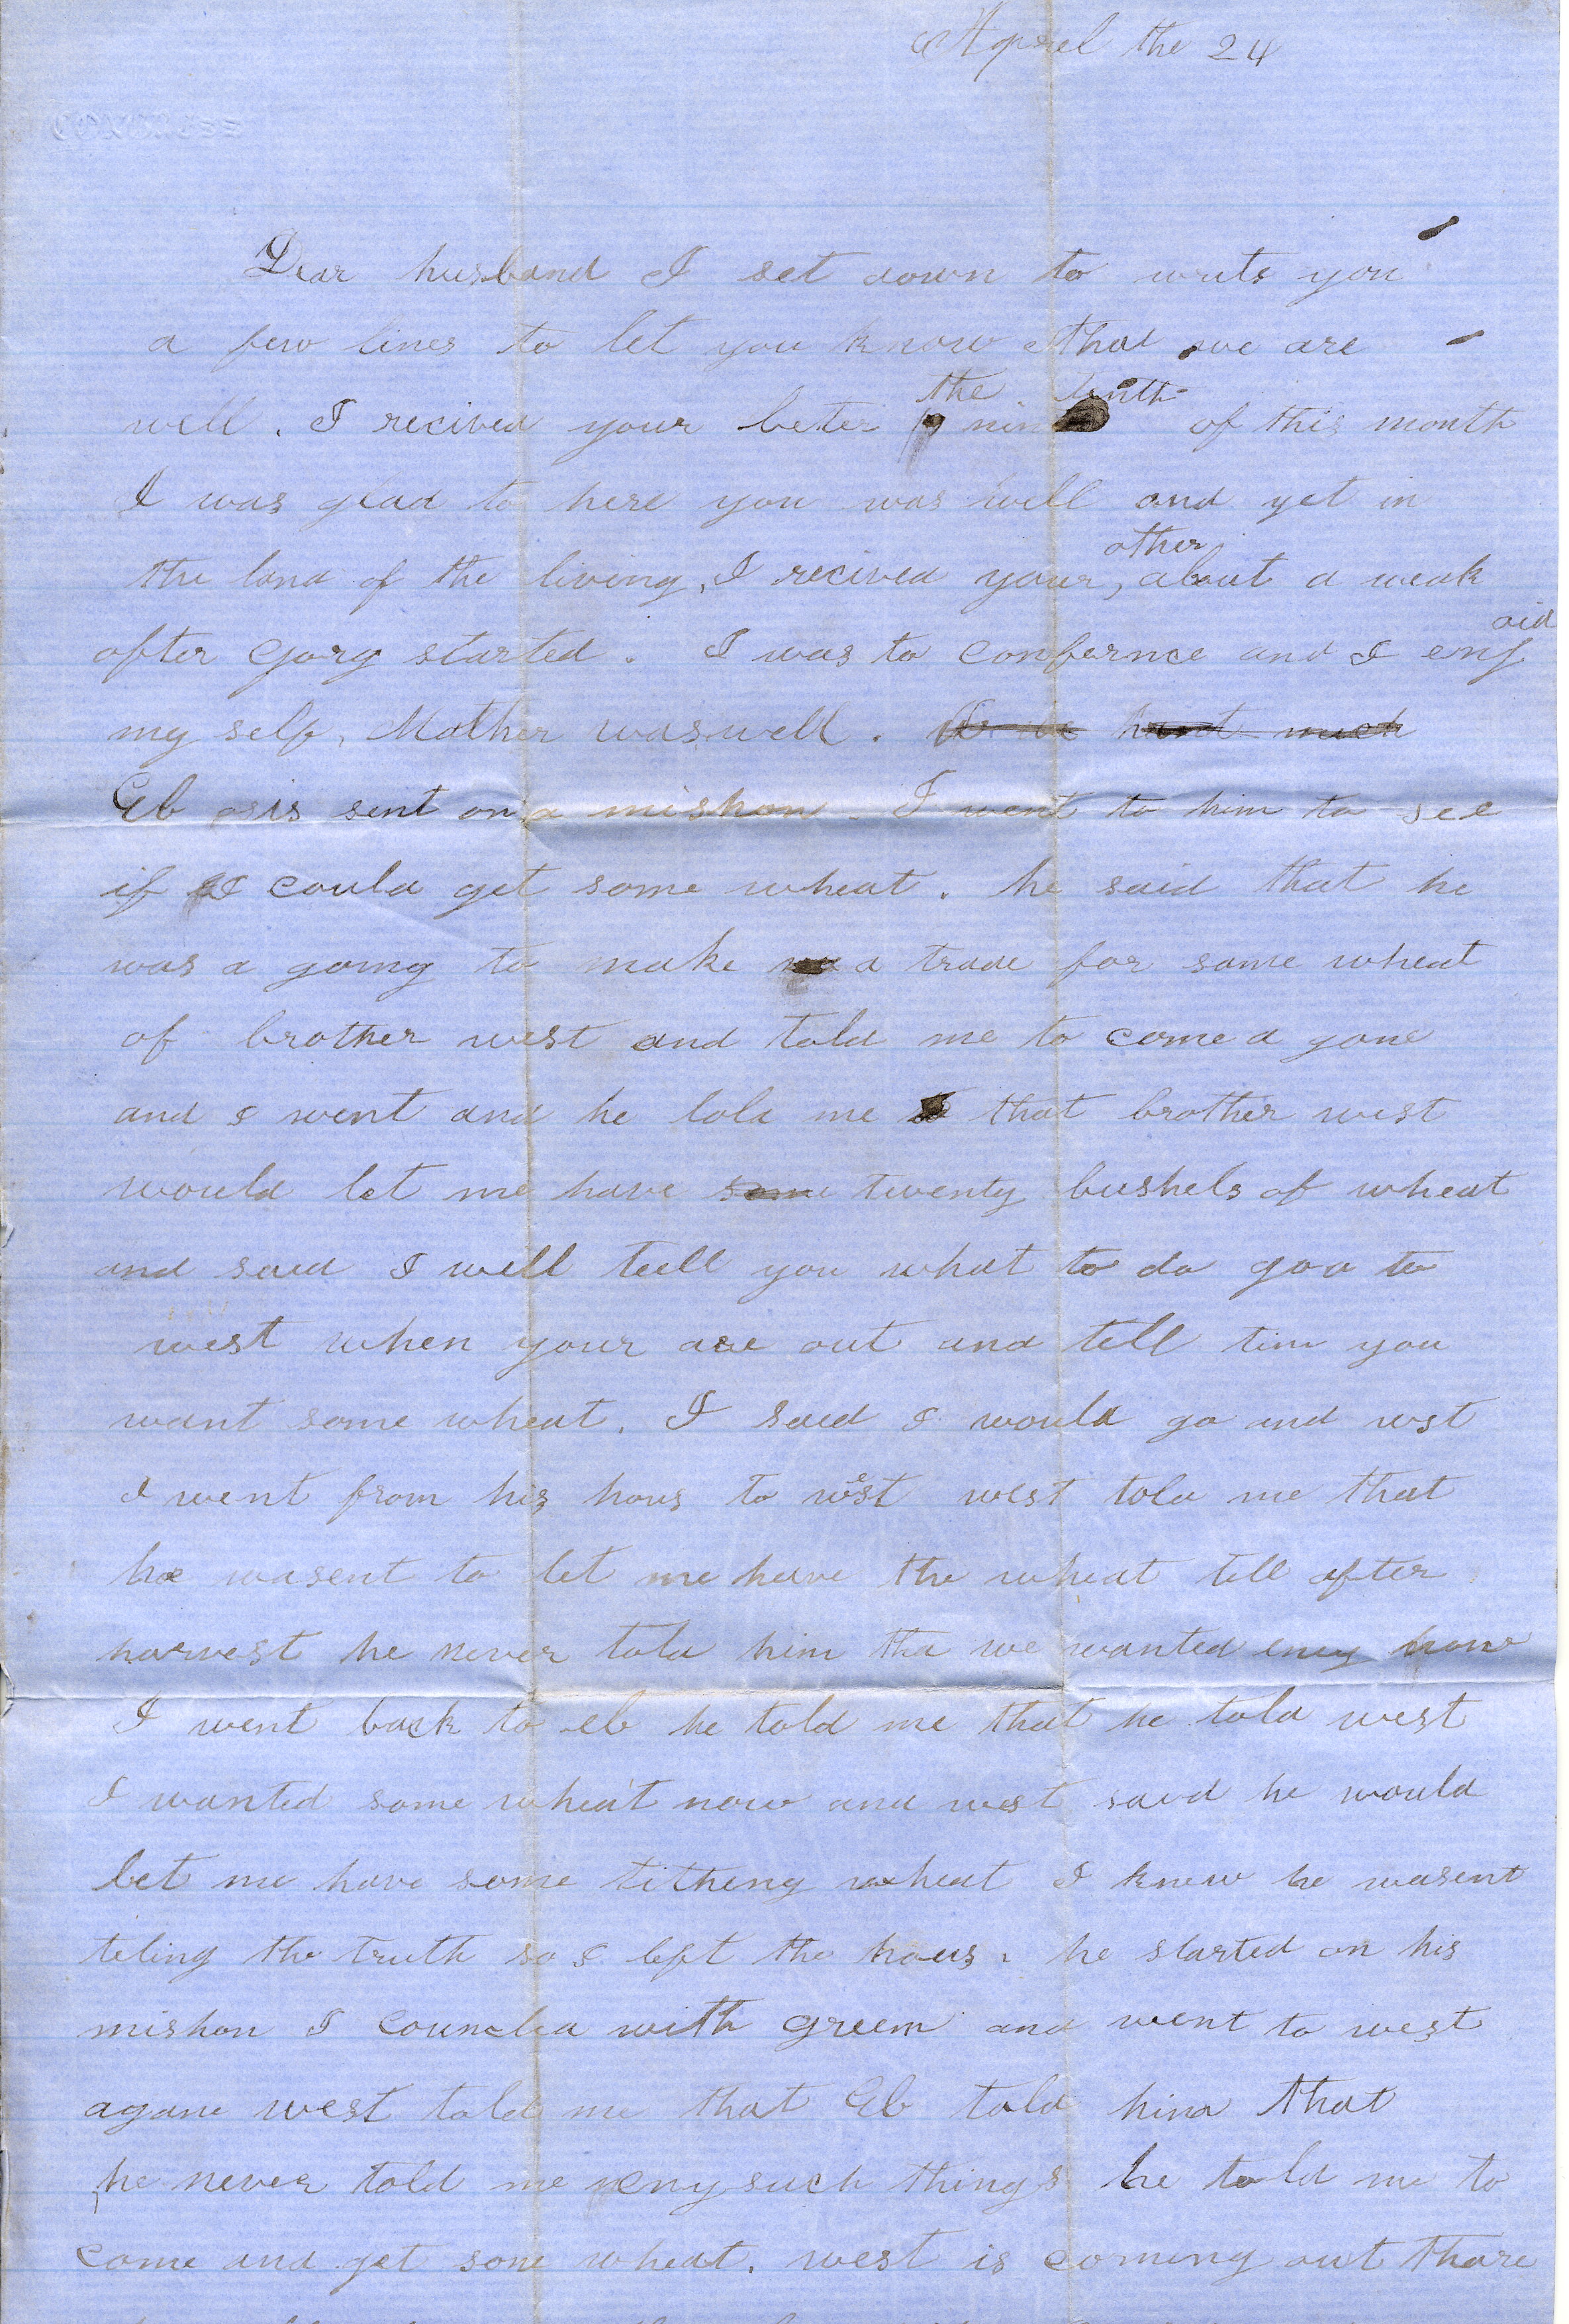 Aprael the 24
Dear husband I set down to write you
a few lines to let you know that we are
well. I recived your leter the tenth of this month
I was glad to here you was well and yet in
the land of the living, I recived your, other about a weak
after Gorg started. I was to confarnce and I engaid
my self, Mother was well. hant much
Eb is sent on a mishon. I went to him to see
if I could get some wheat. he said that he
was a going to make a trade for some wheat
of brother west and told me to come a gane
and I went and he told me that brother west
would let me have some twenty bushels of wheat
and said I well teell you what to do goo to
west when your are out and tell tim you
want some wheat. I saed I would go and
I went from his hous to west west told me that
he wasent to let me have the wheat tell after
harvest he never told him tha we wanted eney
I went back to eb he told me that he told west
I wanted some wheat now and west said he would
let me have some titheng wheat I knew he wasent
teling the truth so I left the hous. he started on his
mishon I with green and went to west
agane west told me that Eb told him that
he never told me eny such things he told me to
come and get some wheat. west is comeing out thare